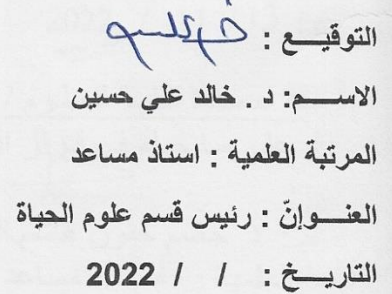 التوقيـــع :
الاســـم: د . خالد علي حسين
المرتبة العلمية : استاذ مساعد
العنـــوانّ : رئيس قسم علوم الحياة
التاريـــخ : / / 2022